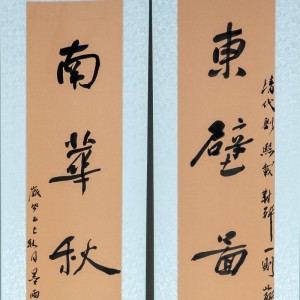 東壁圖
清代劉熙載對聯一則
南華秋
歲
乙巳秋月墨雨